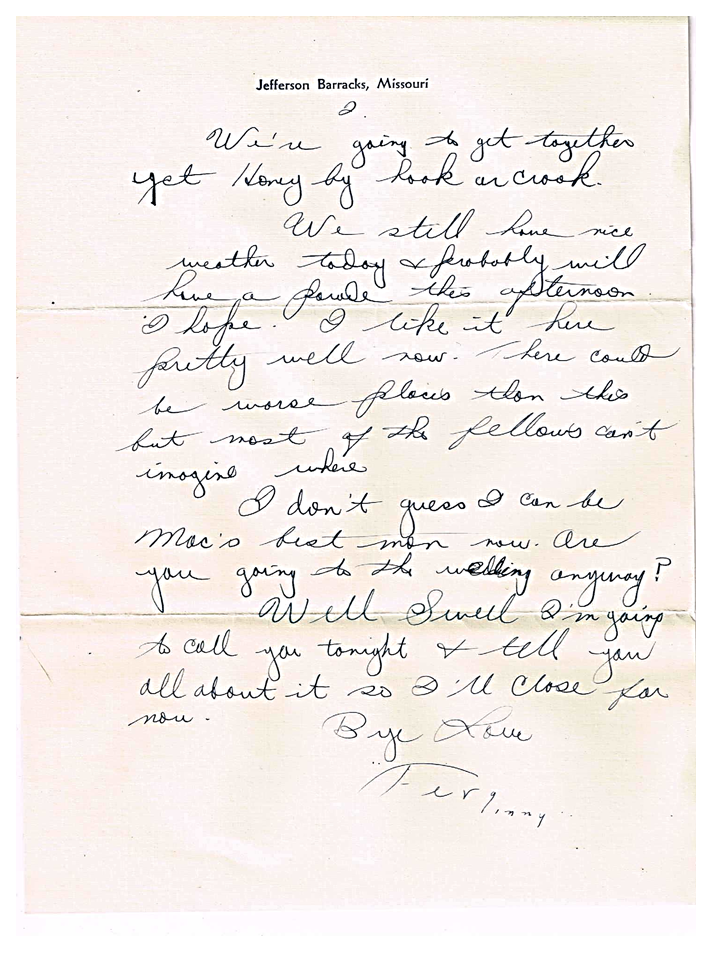 Jefferson Barracks, Missouri
2.
We're going to get together
yet Honey by hook or crook.
We still have nice
weather today & probably will
have a parade this afternoon.
I hope. I like it here
pretty well now. There could
be worse places than this
but most of the fellows can't
imagine where
I don't guess I can be
Mac's best man now. Are
you going to the wedding anyway?
Well Swell I'm going
to call you tonight & tell you
all about it so I'll close for
now.
Bye Love